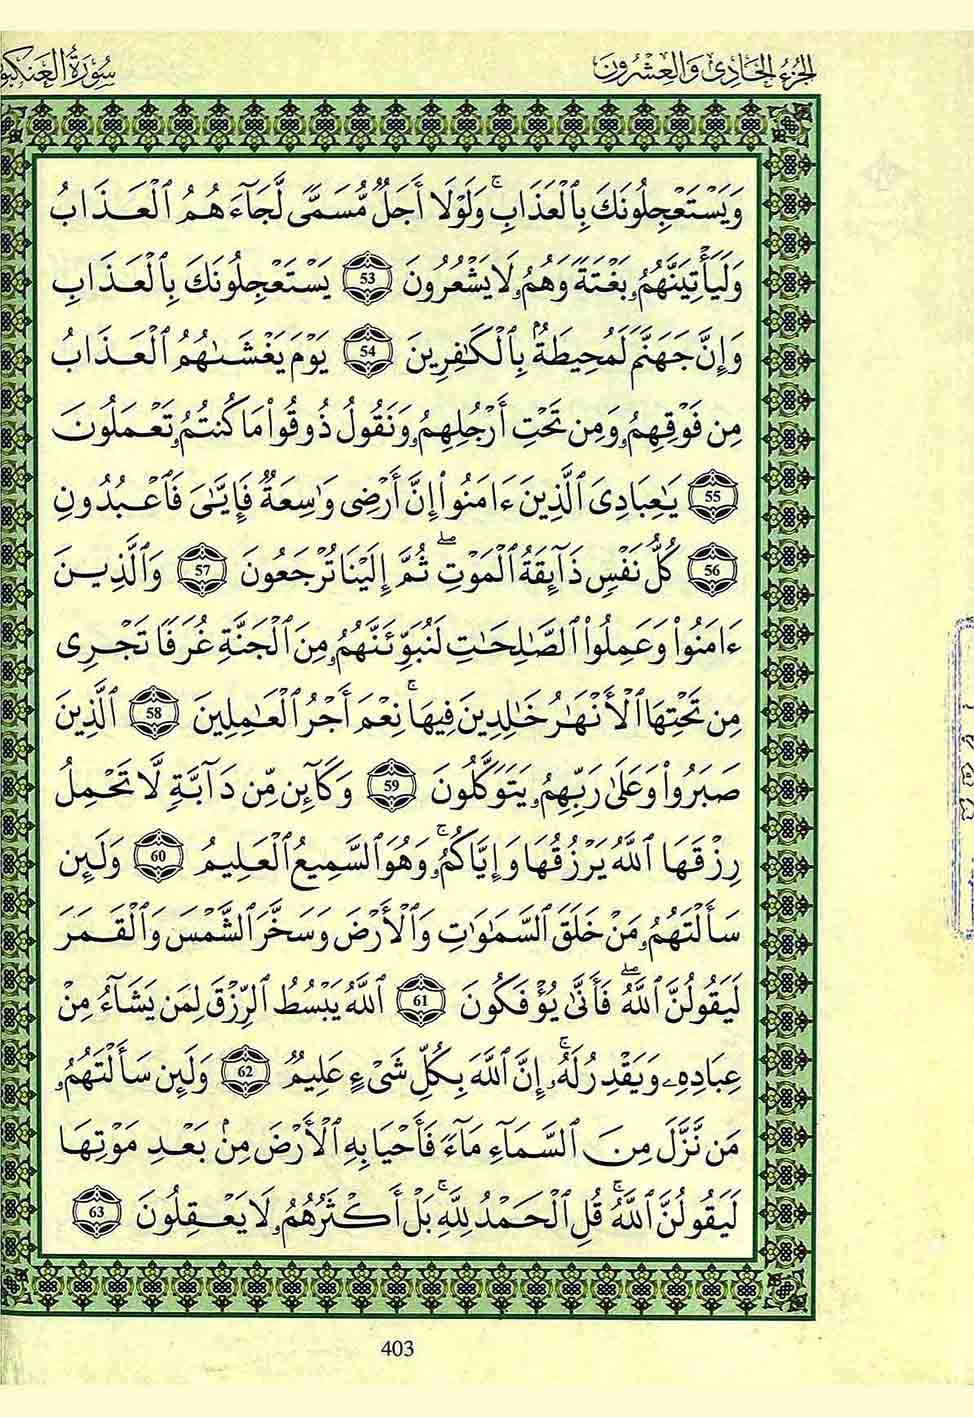 الجُزءُ الحَادِى وَالعِشْرُونَ
سُورَةُ العَنكبو
وَيَسْتَعْجِلُونَكَ بِالْعَذَابِۚ وَلَوْلَا أَجَلٌ مُّسَمًّى لَّجَآءَهُمُ الْعَذَابُ
وَلَيَأْتِيَنَّهُمُۥ بَغْتَةً وَهُمُۥ لَا يَشْعُرُونَ 53 يَسْتَعْجِلُونَكَ بِالْعَذَابِ
وَإِنَّ جَهَنَّمَ لَمُحِيطَةٌۢ بِالْكَٰفِرِينَ 54 يَوْمَ يَغْشَىٰهُمُ الْعَذَابُ
مِن فَوْقِهِمُۥ وَمِن تَحْتِ أَرْجُلِهِمُۥ وَنَقُولُ ذُوقُوا۟ مَا كُنتُمُۥ تَعْمَلُونَ
55 يَٰعِبَادِىَ الَّذِينَ ءَامَنُوٓا۟ إِنَّ أَرْضِى وَٰسِعَةٌ فَإِيَّٰىَ فَاعْبُدُونِ
56 كُلُّ نَفْسٍ ذَآئِقَةُ الْمَوْتِۖ ثُمَّ إِلَيْنَا تُرْجَعُونَ 57 وَالَّذِينَ
ءَامَنُوا۟ وَعَمِلُوا۟ الصَّٰلِحَٰتِ لَنُبَوِّئَنَّهُمُۥ مِنَ الْجَنَّةِ غُرَفًا تَجْرِى
مِن تَحْتِهَا الْأَنْهَٰرُ خَٰلِدِينَ فِيهَاۚ نِعْمَ أَجْرُ الْعَٰمِلِينَ 58 الَّذِينَ
صَبَرُوا۟ وَعَلَىٰ رَبِّهِمُۥ يَتَوَكَّلُونَ 59 وَكَآئِن مِّن دَآبَّةٍ لَّا تَحْمِلُ
رِزْقَهَا اللَّهُ يَرْزُقُهَا وَإِيَّاكُمُۥۚ وَهُوَ السَّمِيعُ الْعَلِيمُ 60 وَلَئِن
سَأَلْتَهُمُۥ مَنْ خَلَقَ السَّمَٰوَٰتِ وَالْأَرْضَ وَسَخَّرَ الشَّمْسَ وَالْقَمَرَ
لَيَقُولُنَّ اللَّهُۖ فَأَنَّىٰ يُؤْفَكُونَ 61 اللَّهُ يَبْسُطُ الرِّزْقَ لِمَن يَشَآءُ مِنْ
عِبَادِهِۦ وَيَقْدِرُ لَهُۥۚ إِنَّ اللَّهَ بِكُلِّ شَىْءٍ عَلِيمٌ 62 وَلَئِن سَأَلْتَهُمُۥ
مَن نَّزَّلَ مِنَ السَّمَآءِ مَآءً فَأَحْيَا بِهِ الْأَرْضَ مِنۢ بَعْدِ مَوْتِهَا
لَيَقُولُنَّ اللَّهُۚ قُلِ الْحَمْدُ لِلَّهِۚ بَلْ أَكْثَرُهُمُۥ لَا يَعْقِلُونَ 63
403